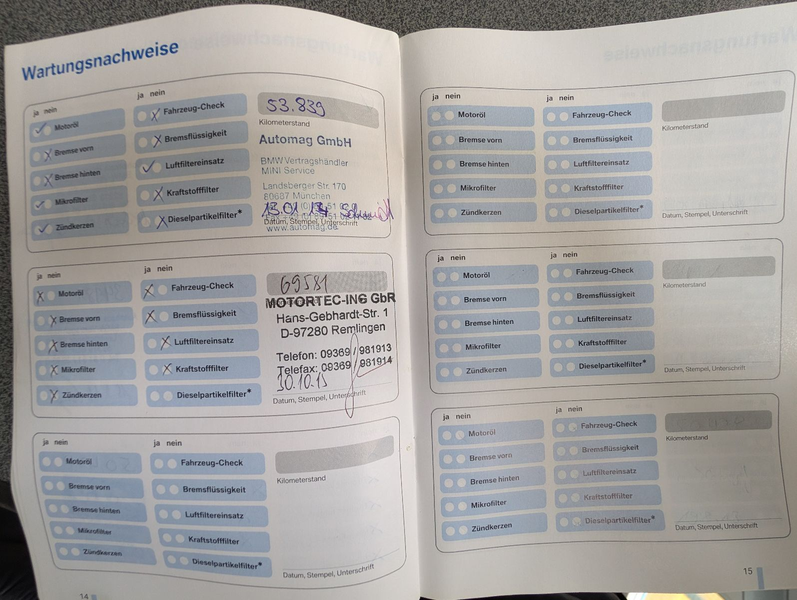 Wartungsnachweise
ja nein
Motoröl
Bremse vorn
Bremse hinten
Mikrofilter
Zündkerzen
ja nein
Fahrzeug-Check
Bremsflüssigkeit
Luftfiltereinsatz
Kraftstofffilter
Dieselpartikelfilter*
53.839
Kilometerstand
Automag GmbH
BMW Vertragshändler
MINI Service
Landsberger Str. 170
80687 München
13.01.14
Datum, Stempel, Unterschrift
www.automag.de
ja nein
Motoröl
Bremse vorn
Bremse hinten
Mikrofilter
Zündkerzen
ja nein
Fahrzeug-Check
Bremsflüssigkeit
Luftfiltereinsatz
Kraftstofffilter
Dieselpartikelfilter*
69581
MOTORTEC-ING GbR
Hans-Gebhardt-Str. 1
D-97280 Remlingen
Telefon: 09369 / 981913
Telefax: 09369 / 981914
30.10.15
Datum, Stempel, Unterschrift
ja nein
Motoröl
Bremse vorn
Bremse hinten
Mikrofilter
Zündkerzen
ja nein
Fahrzeug-Check
Bremsflüssigkeit
Luftfiltereinsatz
Kraftstofffilter
Dieselpartikelfilter*
Kilometerstand
Datum, Stempel, Unterschrift
14
ja nein
Motoröl
Bremse vorn
Bremse hinten
Mikrofilter
Zündkerzen
ja nein
Fahrzeug-Check
Bremsflüssigkeit
Luftfiltereinsatz
Kraftstofffilter
Dieselpartikelfilter*
Kilometerstand
Datum, Stempel, Unterschrift
ja nein
Motoröl
Bremse vorn
Bremse hinten
Mikrofilter
Zündkerzen
ja nein
Fahrzeug-Check
Bremsflüssigkeit
Luftfiltereinsatz
Kraftstofffilter
Dieselpartikelfilter*
Kilometerstand
Datum, Stempel, Unterschrift
ja nein
Motoröl
Bremse vorn
Bremse hinten
Mikrofilter
Zündkerzen
ja nein
Fahrzeug-Check
Bremsflüssigkeit
Luftfiltereinsatz
Kraftstofffilter
Dieselpartikelfilter*
Kilometerstand
Datum, Stempel, Unterschrift
15